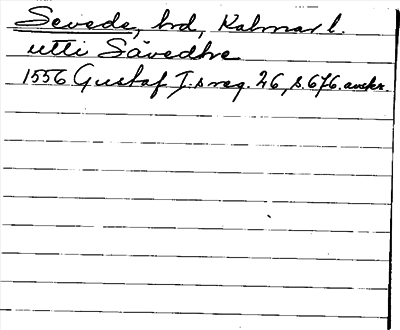 Sevede, hd, Kalmar l.
utti Sävedhe
1556 Gustaf I:s reg. 26, s. 676. avskr.